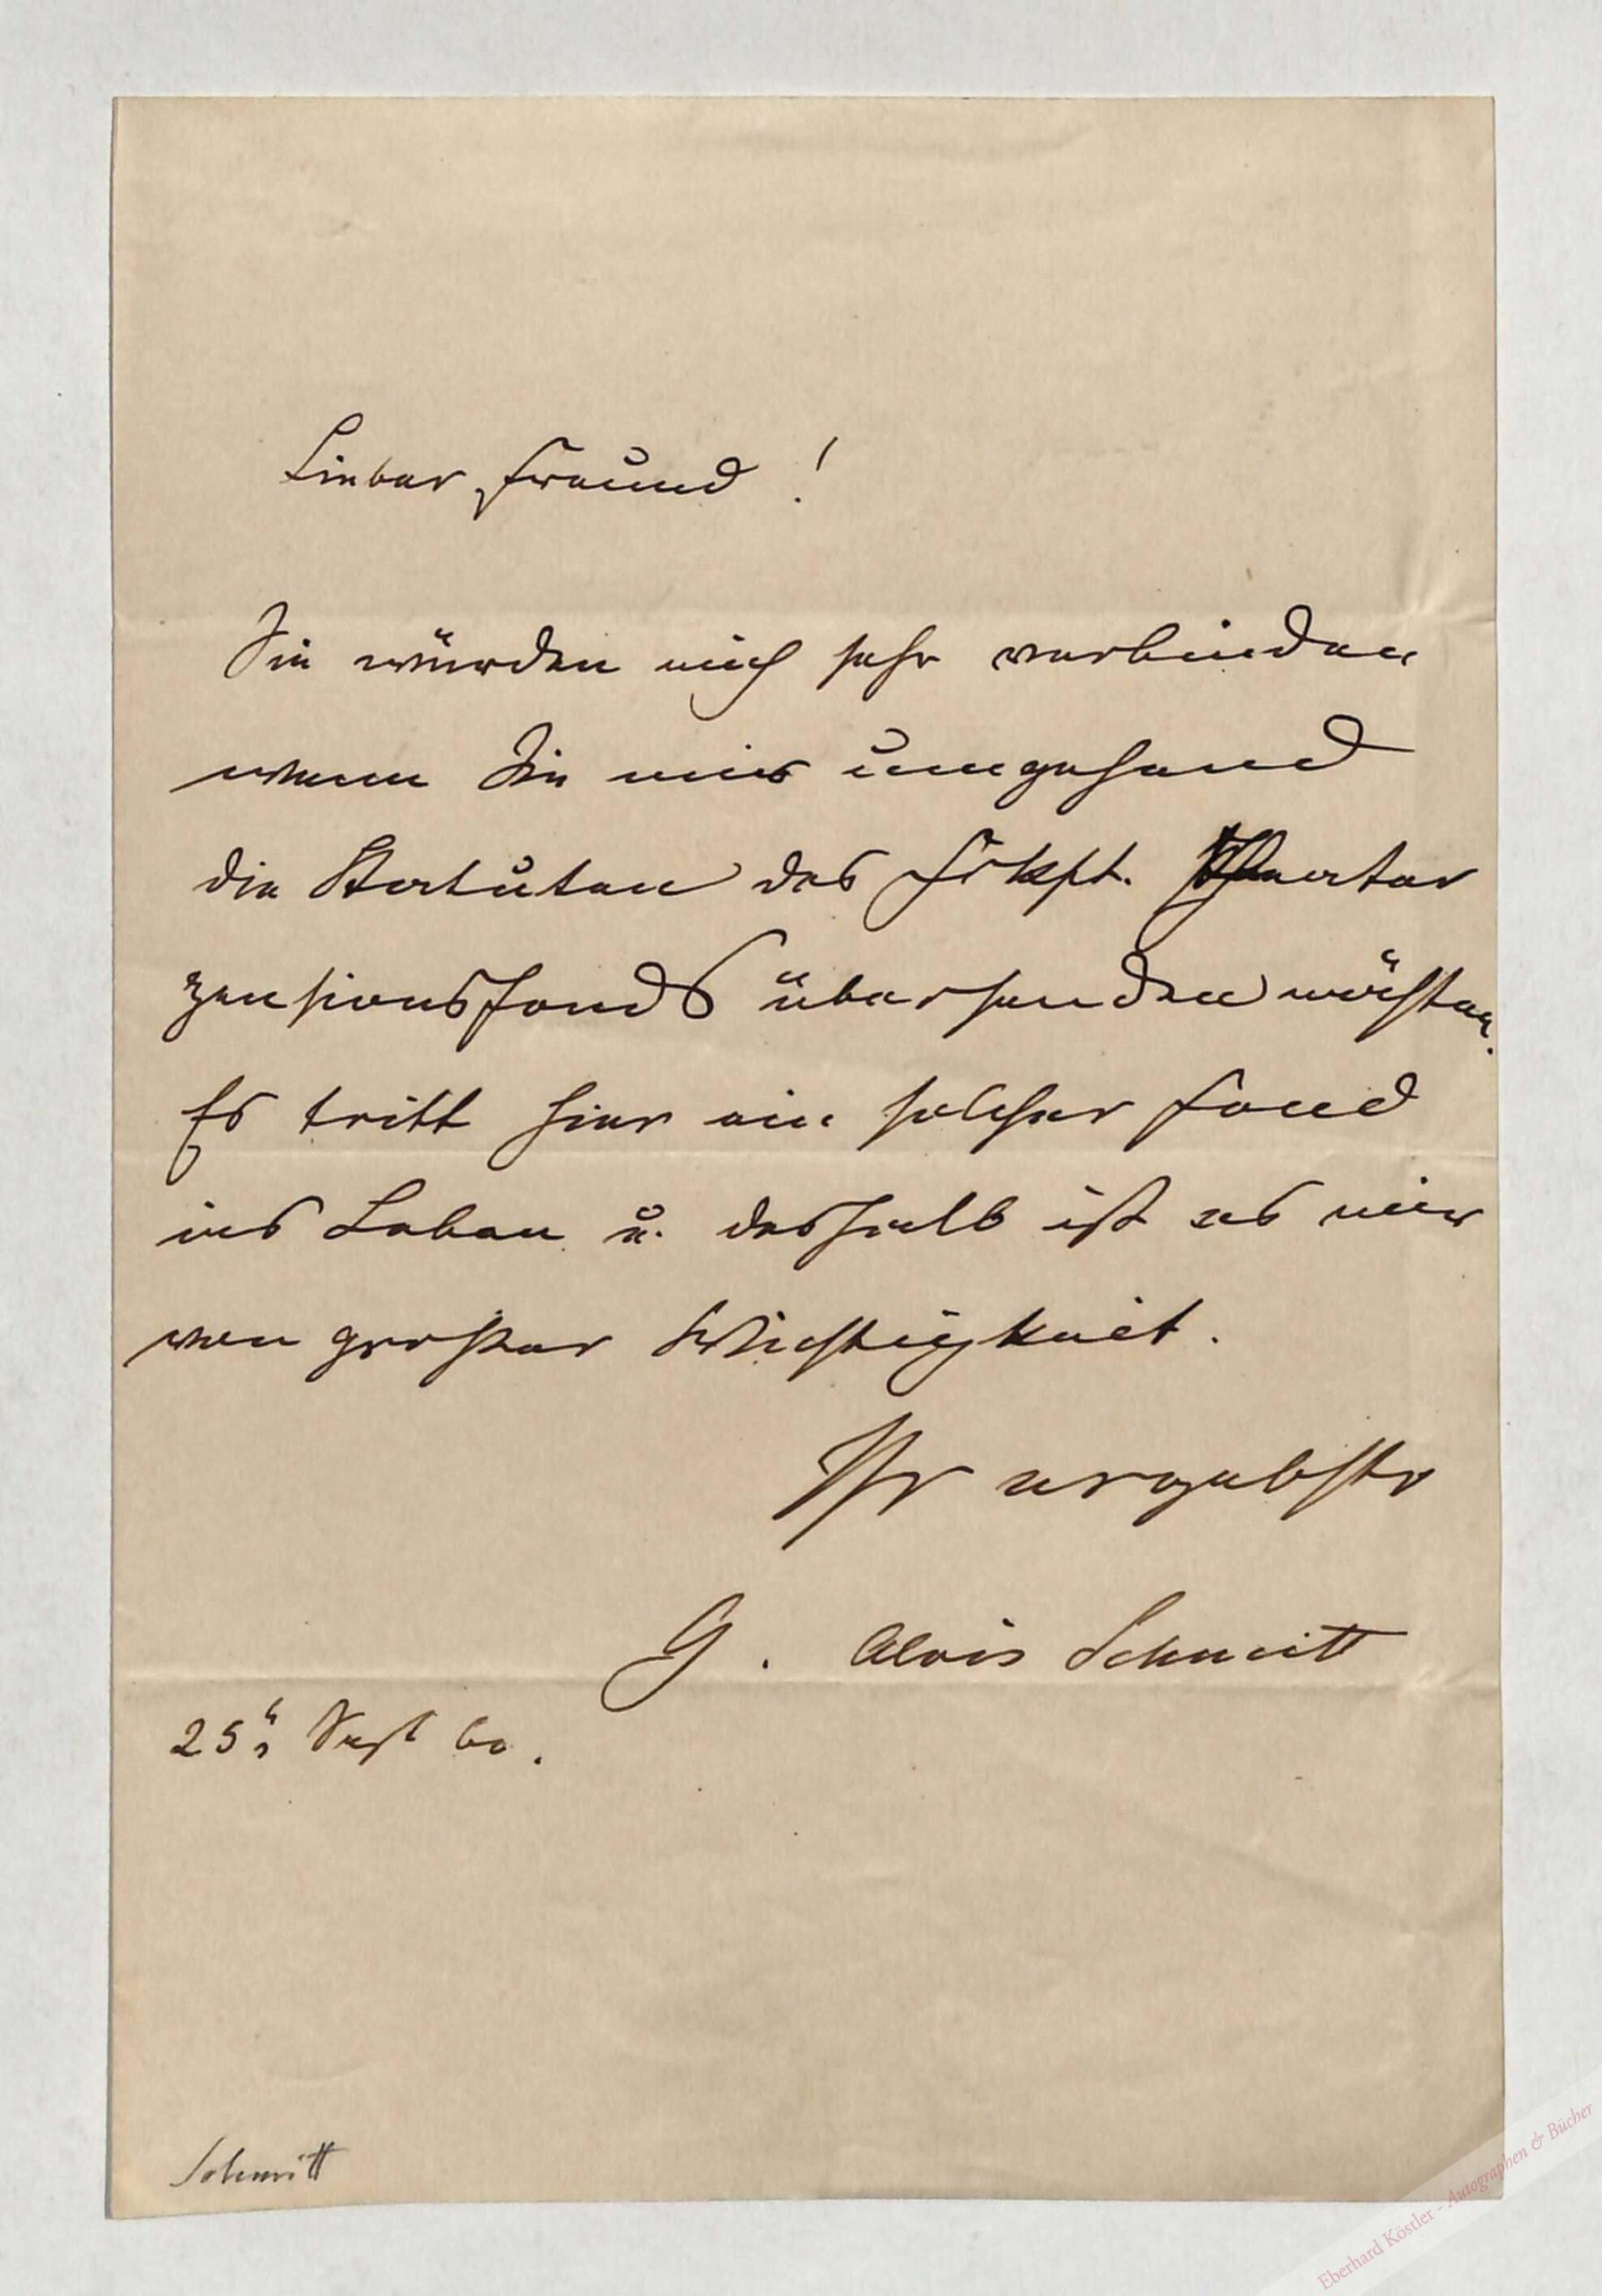 Lieber Freund!
Sie würden mich sehr verbinden
wenn Sie mir umgehend
die Statuten des Theater
pensionsfonds übersenden möchten.
Es tritt hier ein solcher Fond
ins Leben u. deshalb ist es mir
von großer Wichtigkeit.
Ihr ergebster
G. Alois Schmitt
25 Sept 60.
Schmitt
Eberhard Köstler - Autographen & Bücher